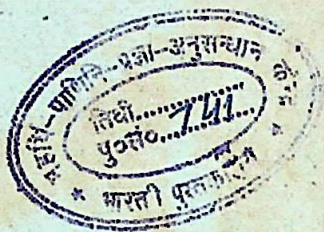 महर्षि-पाणिनि-प्रज्ञा-अनुसन्धान
तिथी..............
पु०सं०....741......
* भारती पुस्तकालय *